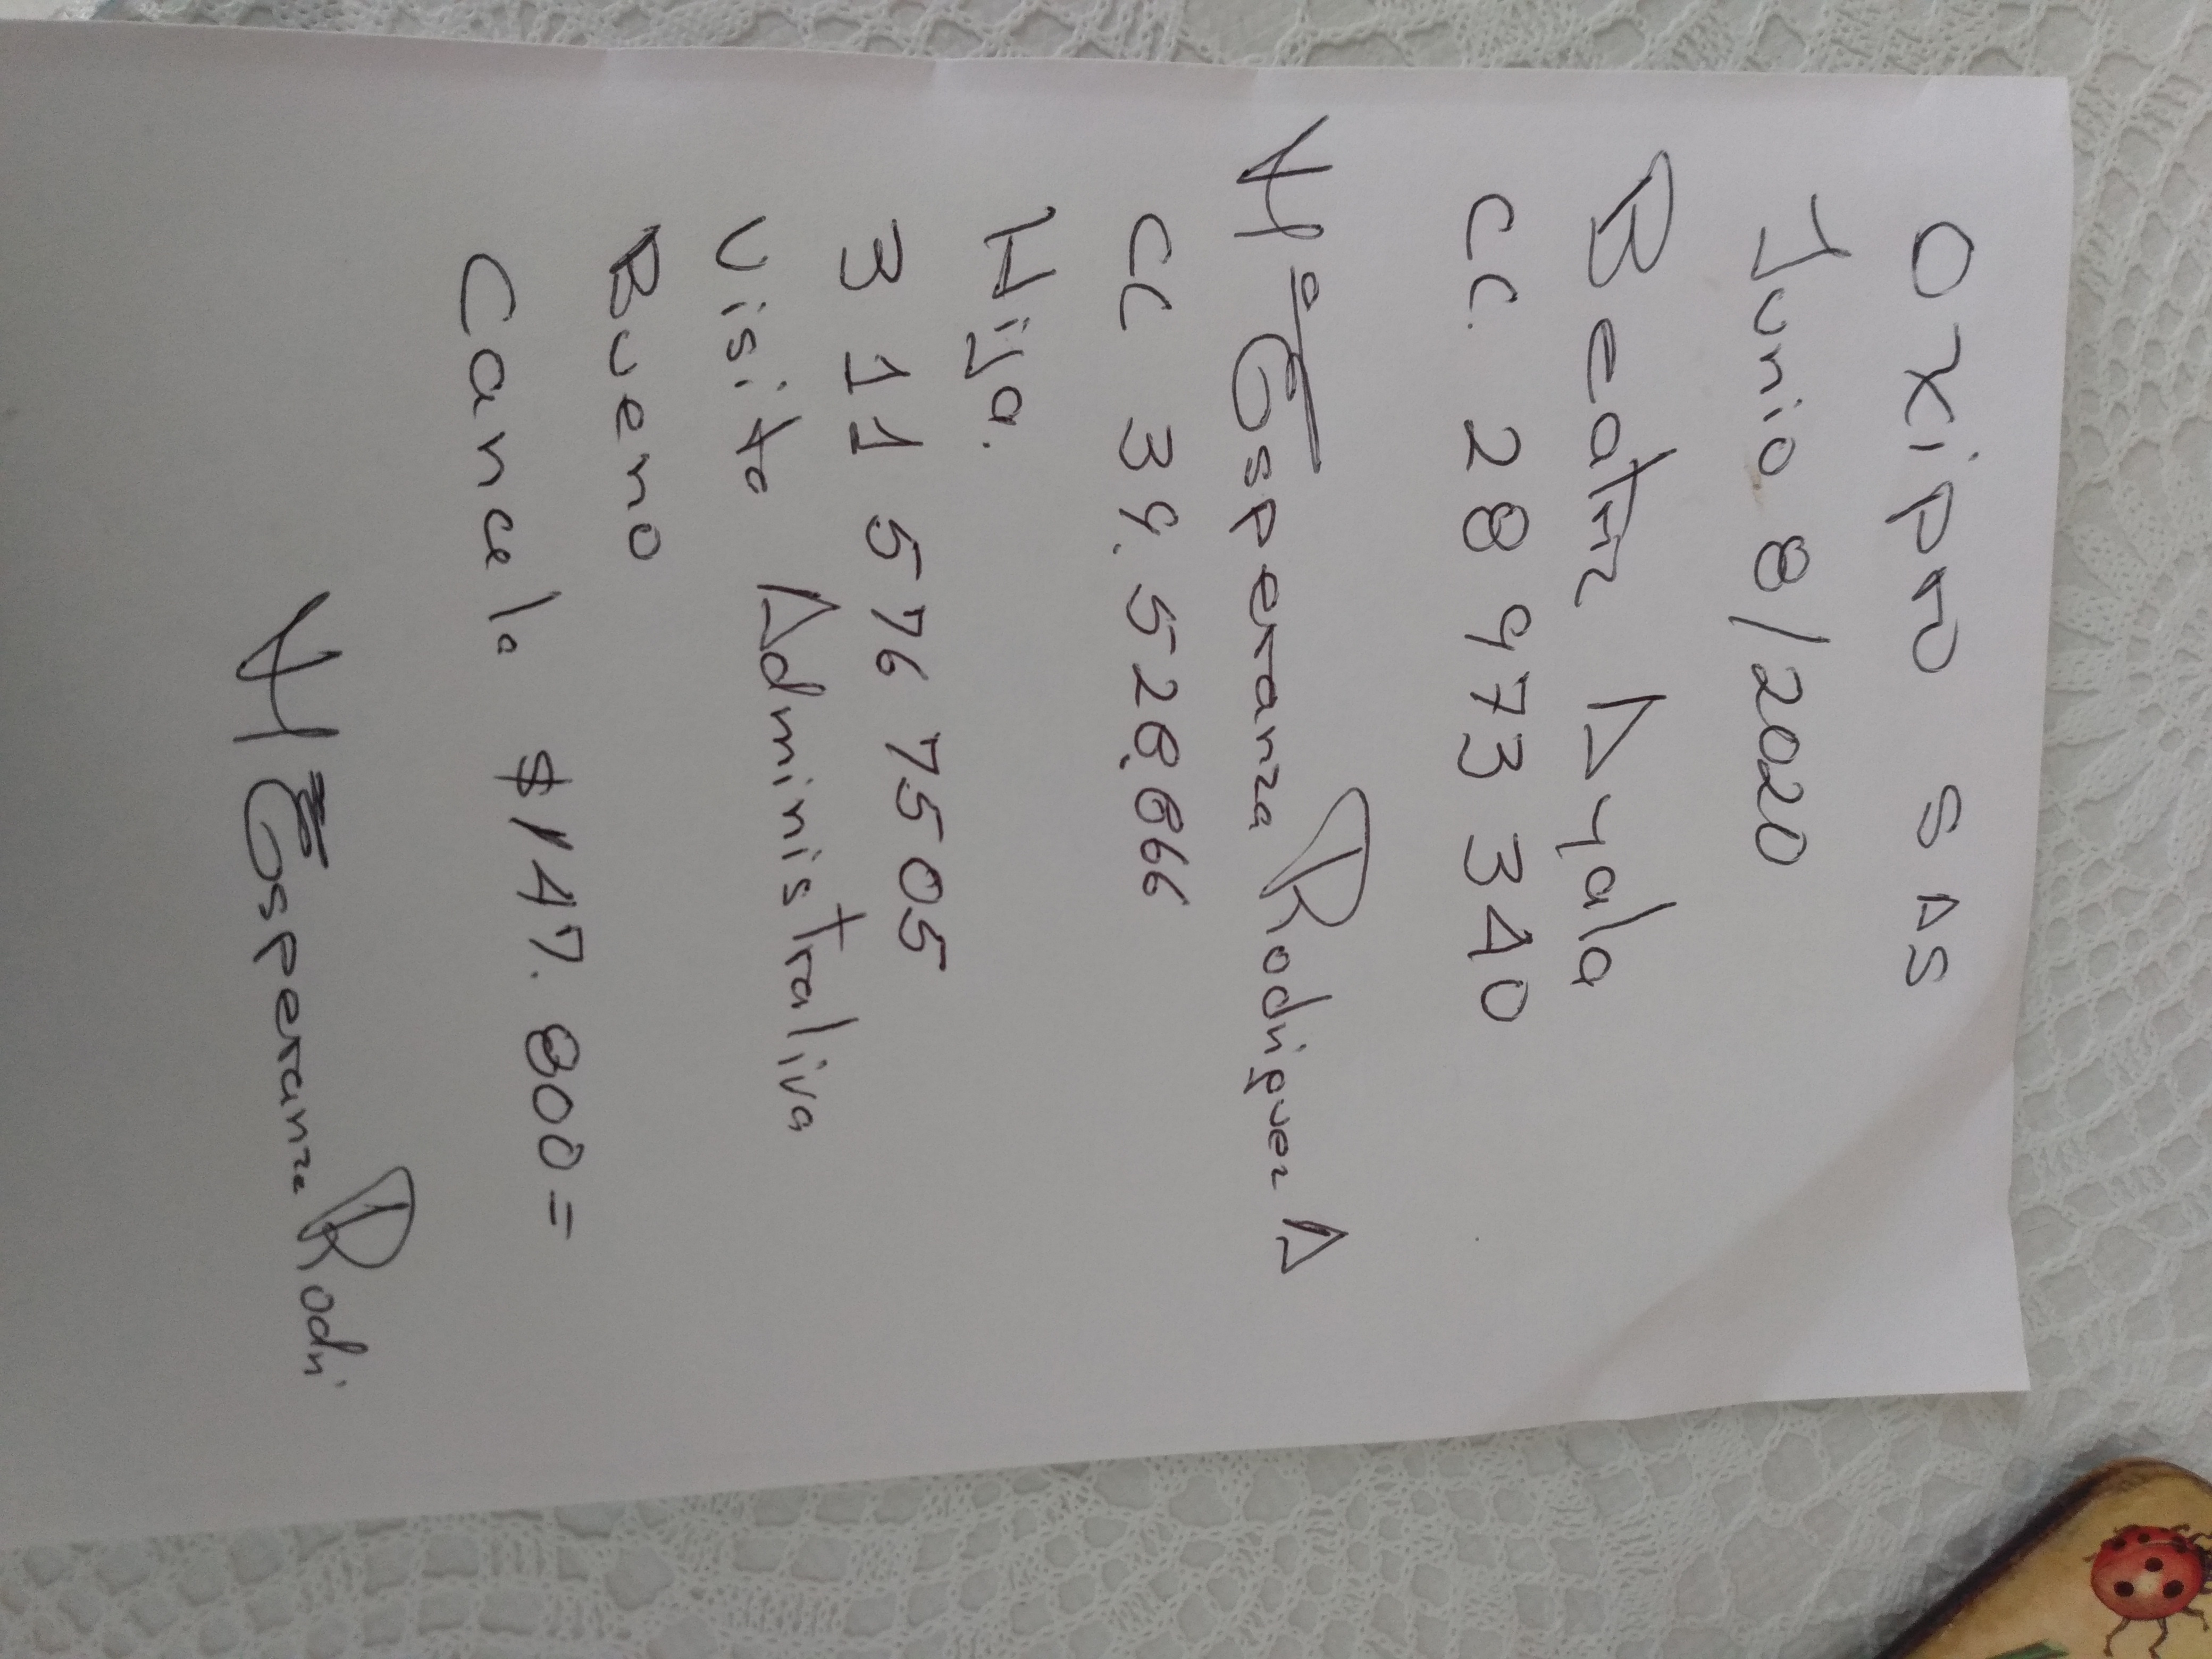 Oxipro SAS
Junio 8/2020
Beatriz Ayala
CC. 28 973 340
Mª Esperanza Rodriguez A
CC 39.528.666
Hija.
311 576 7505
Visita Administrativa
Bueno
Cancela $147.800=
M Esperanza Rodri